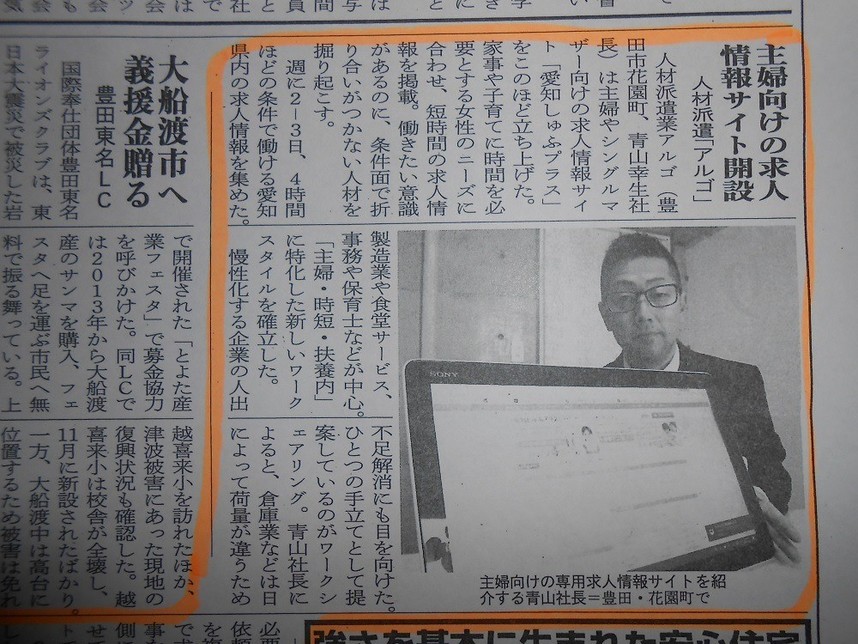 主婦向けの求人
情報サイト開設
人材派遣「アルゴ」
人材派遣業アルゴ(豊
田市花園町、青山幸生社
長)は主婦やシングルマ
ザー向けの求人情報サイ
ト「愛知しゅふプラス」
をこのほど立ち上げた。
家事や子育てに時間を必
要とする女性のニーズに
合わせ、短時間の求人情
報を掲載。働きたい意識
があるのに、条件面で折
り合いがつかない人材を
掘り起こす。
週に2―3日、4時間
ほどの条件で働ける愛知
県内の求人情報を集めた。
製造業や食堂サービス、
事務や保育士などが中心。
「主婦・時短・扶養内」
に特化した新しいワーク
スタイルを確立した。
慢性化する企業の人出
不足解消にも目を向けた。
ひとつの手立てとして提
案しているのがワークシ
ェアリング。青山社長に
よると、倉庫業などは日
によって荷量が違うため
SONY
主婦向けの専用求人情報サイトを紹
介する青山社長=豊田・花園町で
大船渡市へ
義援金贈る
豊田東名LC
国際奉仕団体豊田東名
ライオンズクラブは、東
日本大震災で被災した岩
で開催された「とよた産
業フェスタ」で募金協力
を呼びかけた。同LCで
は2013年から大船渡
産のサンマを購入、フェ
スタへ足を運ぶ市民へ無
料で振る舞っている。上
越喜来小を訪れたほか、
津波被害にあった現地の
復興状況も確認した。越
喜来小は校舎が全壊し、
11月に新設されたばかり。
一方、大船渡中は高台に
位置するため被害は免れ
強さを基本に生まれた安心住宅